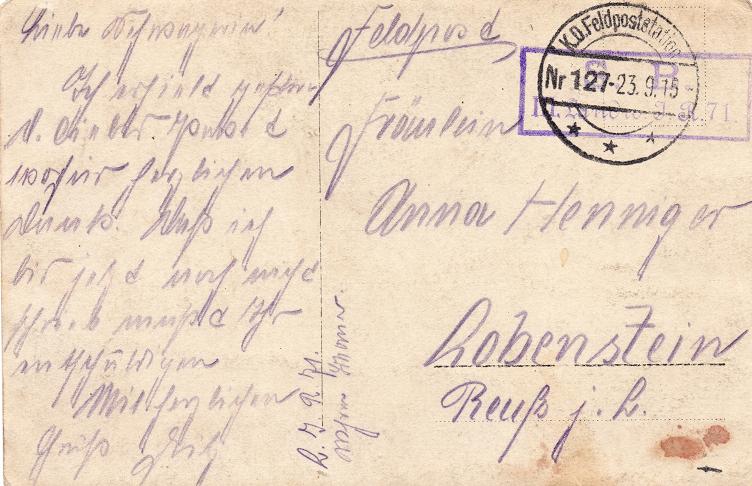 Liebe Schwägerin!
Ich erhielt gestern
d. liebes Paket
wofür herzlichen
Dank. Daß ich
bis jetzt noch nicht
schrieb müßt Ihr
entschuldigen
Mit herzlichen
Gruß
L. I. R. 71.
Feldpost
Fräulein
Anna Henniger
Lobenstein
Reuß j. L.
K.D. Feldpoststation
Nr 127 -23.9.15-
S. B.
I. R. 71